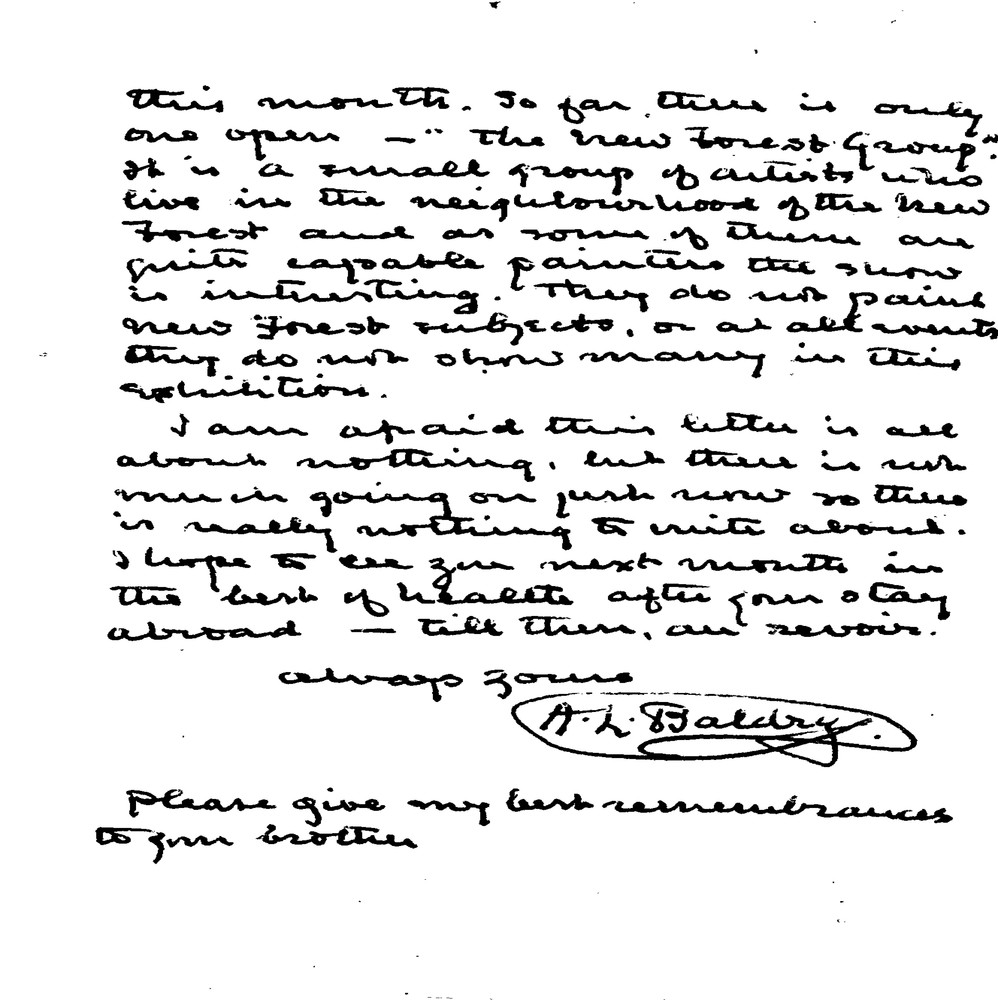 this month. So far there is only
one open — "The New Forest Group".
It is a small group of artists who
live in the neighbourhood of the New
Forest and as some of them are
quite capable painters the show
is interesting. They do not paint
New Forest subjects, or at all events
they do not show many in this
exhibition.
I am afraid this letter is all
about nothing, but there is not
much going on just now so there
is really nothing to write about.
I hope to see you next month in
the best of health after your stay
abroad — till then, au revoir.
always yours
A. L. Baldry.
Please give my best remembrances
to your brother